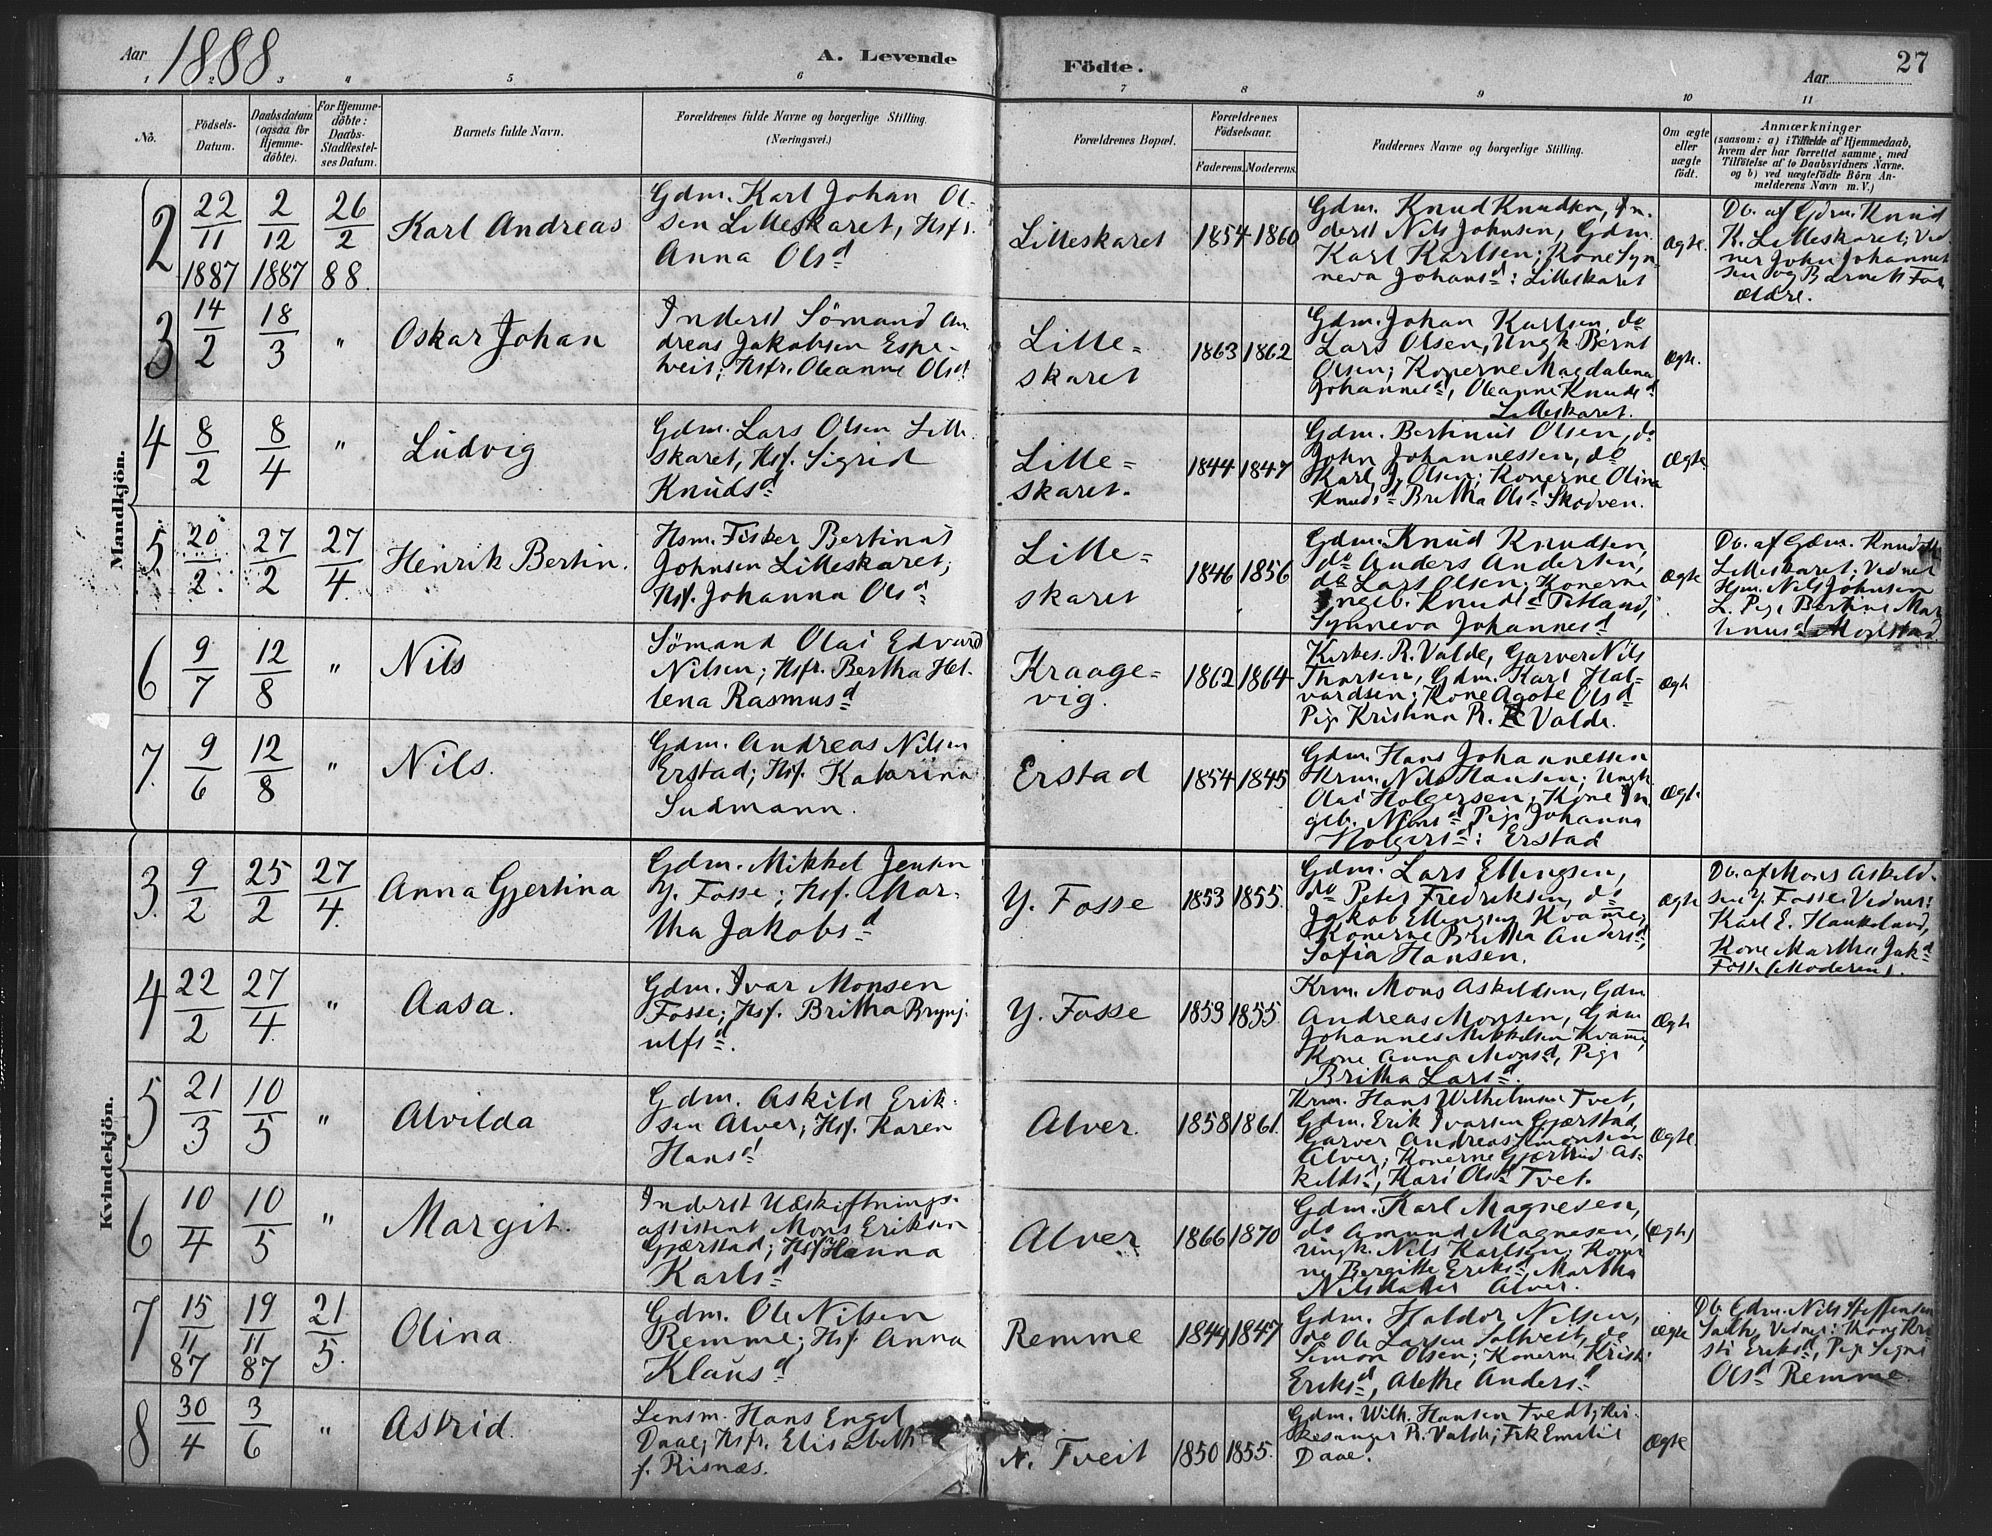 Aar 1888
A. Levende Födte.
27
Aar
1 2 3 4 5 6 7 8 9 10 11
No.
Födsels-
Datum.
Daabsdatum
(ogsaa for
Hjemme-
döbte).
For Hjemme-
döbte:
Daabs-
Stadfæstel-
ses Datum.
Barnets fulde Navn.
Forældrenes fulde Navne og borgerlige Stilling.
(Næringsvei.)
Forældrenes Bopæl.
Forældrenes
Födselsaar.
Faderens. Moderens.
Faddernes Navne og borgerlige Stilling.
Om ægte
eller
uægte
födt.
Anmærkninger
(saasom: a) i Tilfælde af Hjemmedaab,
hvem der har forrettet samme, med
Tilföielse af to Daabsvidners Navne.
og b) ved uægtefödte Börn An-
melderens Navn m. V.)
Mandkjön.
2
22/11 1887
2/12 1887
26/2 88.
Karl Andreas
Gdm. Karl Johan Ol-
sen Lilleskaret, Hsfr.
Anna Olsd
Lilleskaret
1854 1860
Gdm. Knud Knudsen, In-
derst Nils Johnsen, Gdm.
Karl Karlsen; Kone Syn-
neva Johansd: Lilleskaret
Ægte.
Db. af Gdm. Knud
K. Lilleskaret; Vid-
ner John Johannes
sen og Barnets For
ældre.
3
14/2
18/3
"
Oskar Johan
Inderst Sömand An
dreas Jakobsen Espe-
tveit; Hsfr. Oleanne Olsd
Lille-
skaret
1863 1862
Gdm. Johan Karlsen, do
Lars Olsen, Ungk. Bernt
Olsen; Konerne Magdalena
Johannesd, Oleanne Knudsd
Lilleskaret.
Ægte.
4
8/2
8/4
"
Ludvig
Gdm. Lars Olsen Lille
skaret, Hsf. Sigrid
Knudsd
Lille-
skaret.
1844 1847
Gdm. Bertinus Olsen, do
John Johannessen, do
Karl J. Olsen; Konerne Olina
Knudsd Britha Olsd Skodven.
Ægte
5
20/2
27/2
27/4
Henrik Bertin.
Hsm. Fisker Bertinus
Johnsen Lilleskaret;
Hsf. Johanna Olsd
Lille-
skaret
1846 1856
Gdm. Knud Knudsen,
do Anders Andersen,
do Lars Olsen; Konerne
Ingeb. Knudsd Titland,
Synneva Johannesd
Ægte
Db. af Gdm. Knud
Lilleskaret; Vidner
Hjm. Nils Johnsen
L. Pige Bertine Mar
6
9/7
12/8
"
Nils
Sömand Olai Edvard
Nilsen; Hsfr. Bertha He-
lena Rasmusd
Kraage-
vig.
1862 1864
Kirkes. R. Valde, Garver Nils
Thorsen, Gdm. Karl Hal-
vardsen; Kone Agate Olsd
Pige Kristina R. Valde.
Ægt
7.
9/6
12/8
"
Nils.
Gdm. Andreas Nilsen
Erstad; Hsf. Katarina
Sudmann.
Erstad
1854 1845
Gdm. Hans Johannessen
Krm. Nils Hansen; Ungk
Olai Holgersen; Kone In
geb. Nilsd Pige Johanna
Holgersd: Erstad
Ægte
Kvindekjön.
3.
9/2
25/2
27/4.
Anna Gjertina
Gdm. Mikkel Jensen
Y. Fosse; Hsf. Mar-
tha Jakobsd
Y. Fosse
1853 1855.
Gdm. Lars Ellingsen,
do Peter Fredriksen, do
Jakob Ellingsen Kvamme;
Konerne Britha Andersd,
Sofia Hansen.
Ægte
Db. af Mons Askild-
sen Y. Fosse. Vidner:
Karl E. Haukeland,
Kone Martha Jakd
Fosse (Moderen).
4
22/2
27/4.
"
Aasa.
Gdm. Ivar Monsen
Fosse; Hsf. Britha Brynj-
ulfsd.
Y. Fosse
1859 1855.
Krm. Mons Askildsen, Gdm
Andreas Monsen, Gdm
Johannes Mikkelsen Kvamme;
Kone Anna Monsd, Pige
Britha Larsd.
Ægte
5
21/3
10/5
"
Alvilda
Gdm. Askild Erik-
sen Alver; Hsf. Karen
Hansd
Alver.
1858 1861.
Krm. Hans Wilhelmsen Tvet,
Gdm. Erik Ivarsen Gjærstad,
Garver Andreas Simonsen
Alver; Konerne Gjertrud As-
kildsd, Kari Olsd Tvet.
Ægte.
6
10/4
10/5
"
Margit.
Inderst Udskiftnings-
assistent Mons Eriksen
Gjærstad; Hsf. Hanna
Karlsd
Alver
1866 1870
Gdm. Karl Magnesen,
do Amund Magnesen,
Ungk. Nils Karlsen; Koner
ne Bergitte Eriksd, Martha
Nilsdatter Alver.
Ægte
7
15/11 87
19/11 87
21/5.
Olina.
Gdm. Ole Nilsen
Remme; Hsf. Anna
Klausd
Remme
1844 1847
Gdm. Haldor Nilsen,
do Ole Larsen Solhveit, do
Simon Olsen; Konerne Kristi
Eriksd, Alethe Andersd
Ægte
Db. Gdm. Nils Steffensen
Solh. Vidner: Kone Kri-
sti Eriksd, Pige Signi
Olsd Remme.
8
30/4
3/6
"
Astrid.
Lensm. Hans Engel
Daae; Hsfr. Elisabeth
f. Risnæs.
N. Tveit
1850 1855.
Gdm. Wilh. Hansen Tvedt, Kir-
kesanger R. Valde; Frk Emilie
Daae.
Ægte